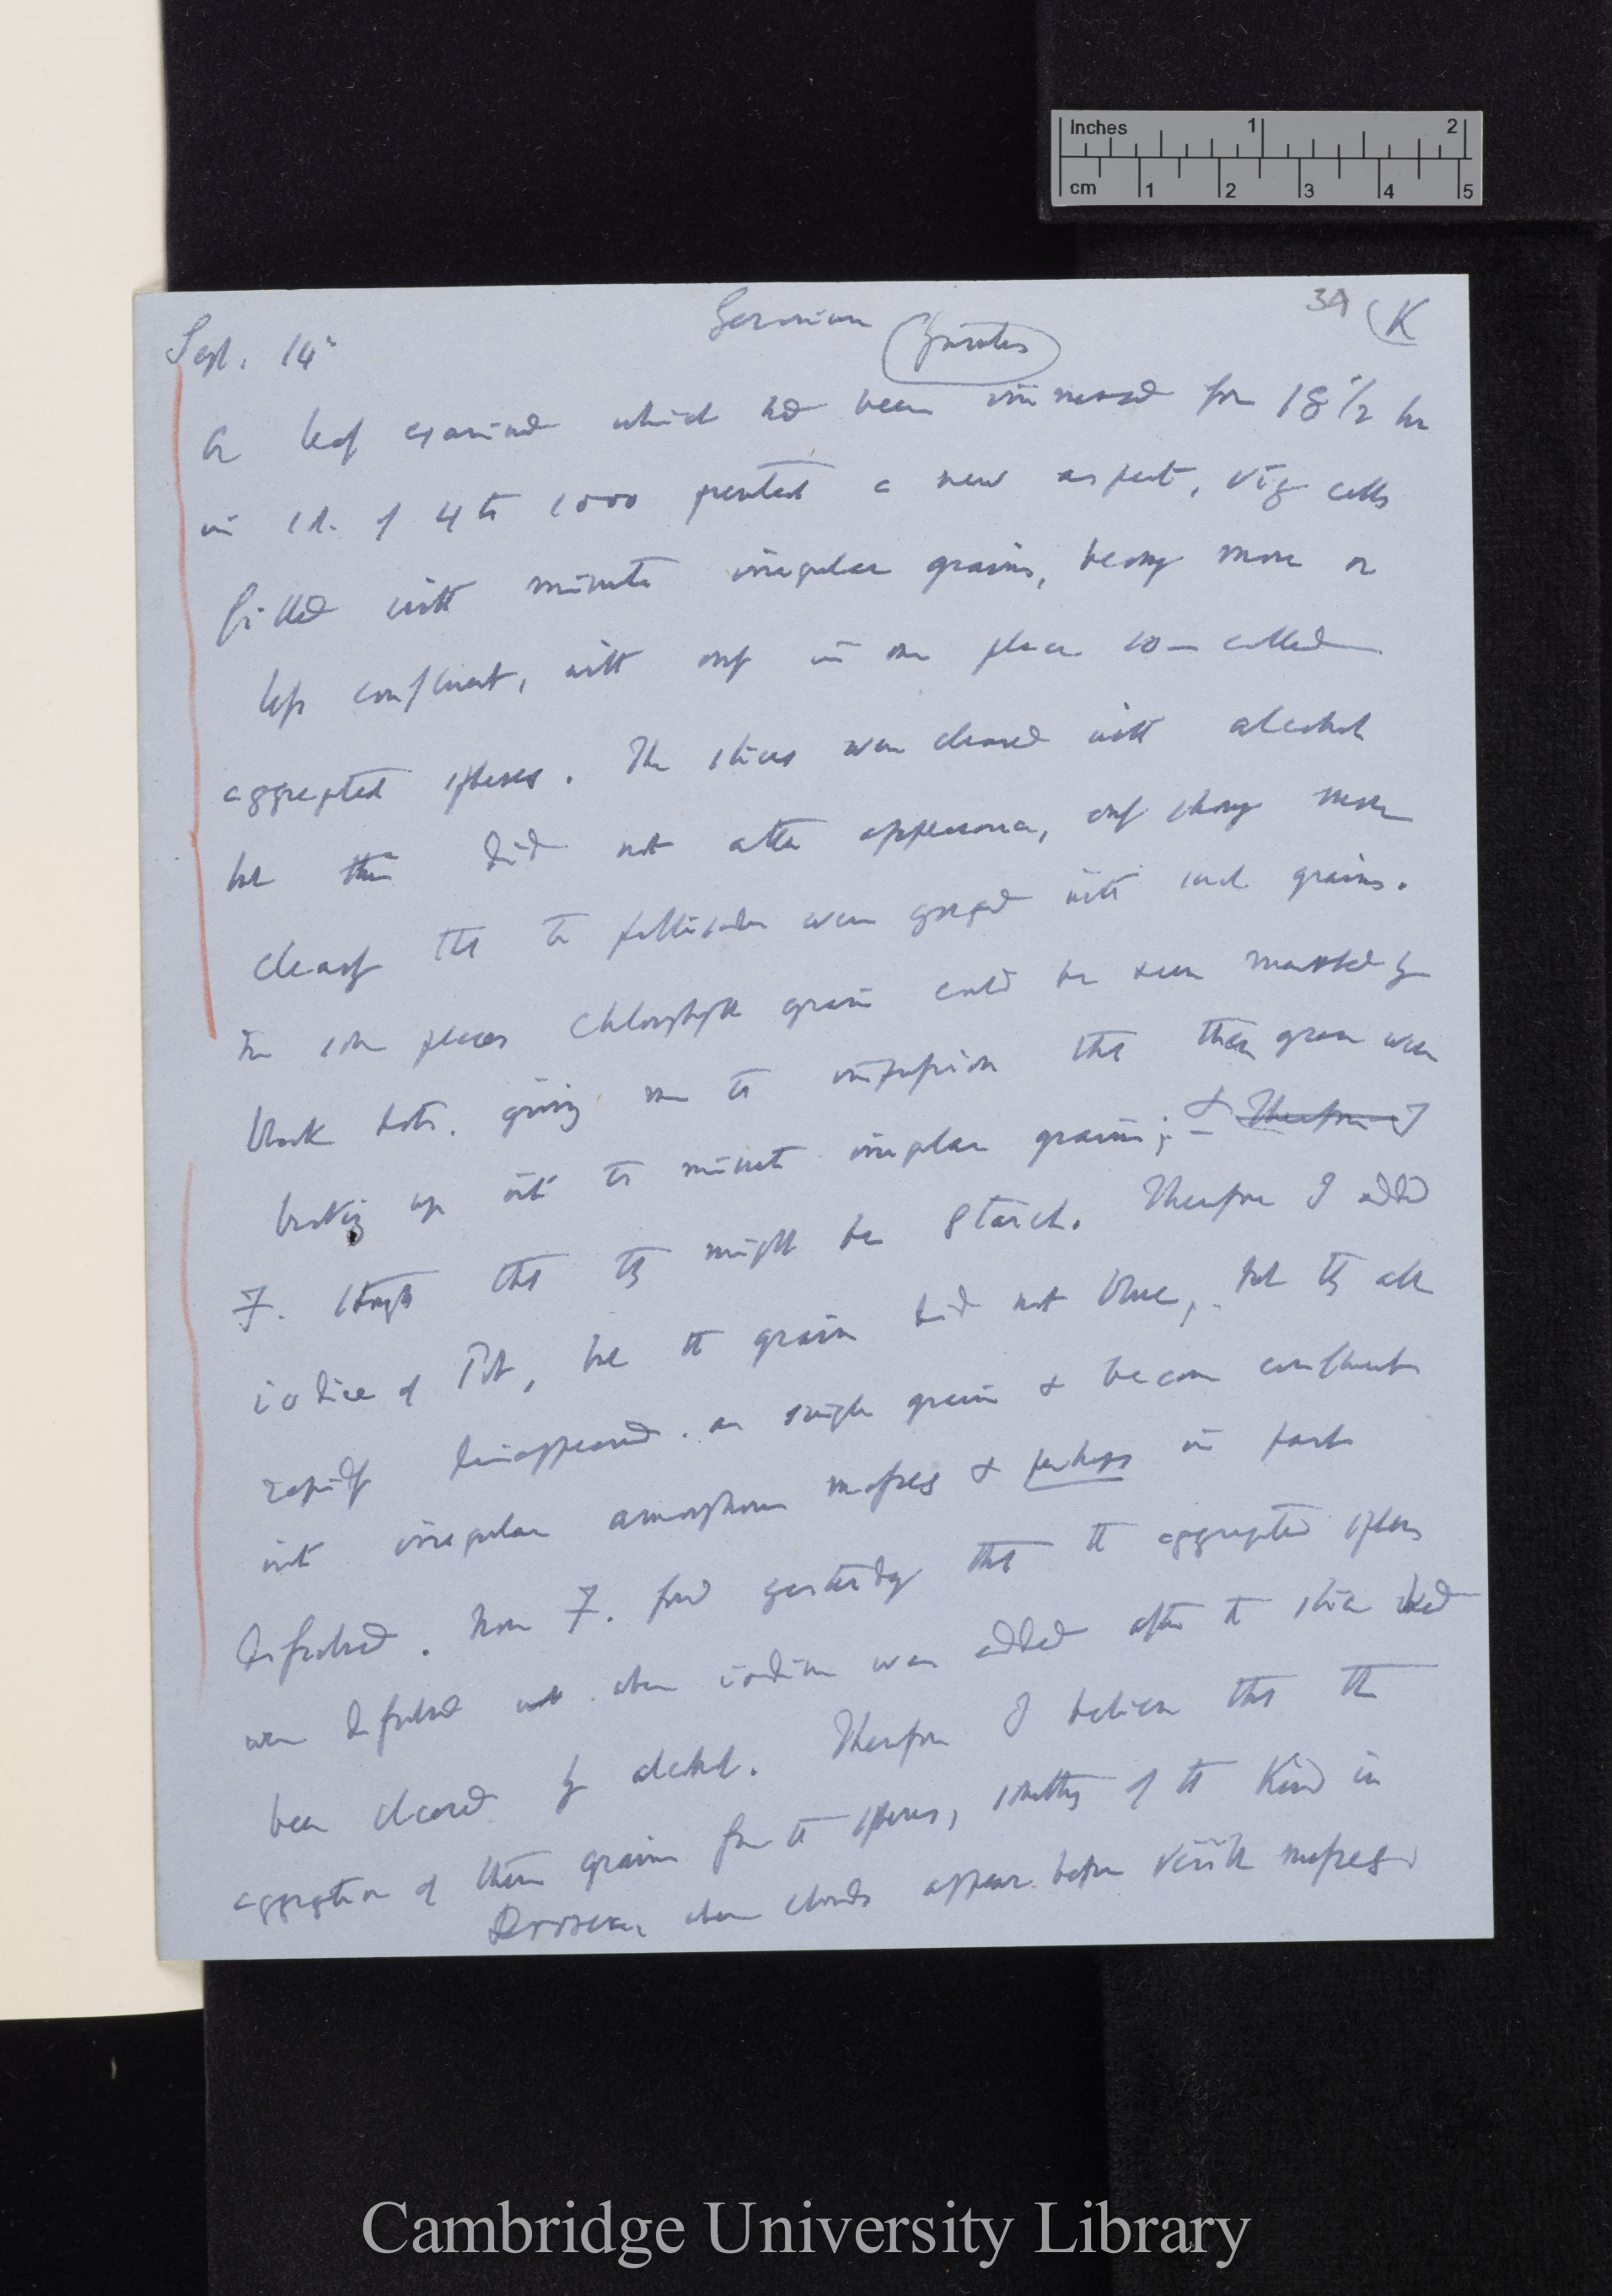 Inches 1 2
cm 1 2 3 4 5
39 (K
Sept. 14th Geranium
A leaf examined which had been immersed for 18 1/2 hr
in sol. of 4 to 1000 presented a new aspect, viz cells
filled with minute irregular grains, being more or
less confluent, with only in one place so-called
aggregated spheres. The slices were cleared with alcohol
but this did not alter appearance, only shong more
clearly that the were gorged with such grains.
In some places chlorophyll grains could be seen by
black dots. giving me the impression that these grains were
breaking up into the minute irregular grains; & Therefore I
F. thought that they might be Starch. Therefore I added
iodide of Pot, but the grains did not blue, but they all
rapidly disappeared. as single grains & became confluent
into irregular amorphous masses & perhaps in part
dissolved. Now F. found yesterday that the aggregated spheres
were dissolved when iodine was added after the slice had
been cleared by alcohol. Therefore I believe that the
aggregation of these grains form the spheres, something of the kind in
Drosera, when clouds appear before visible masses
Cambridge University Library